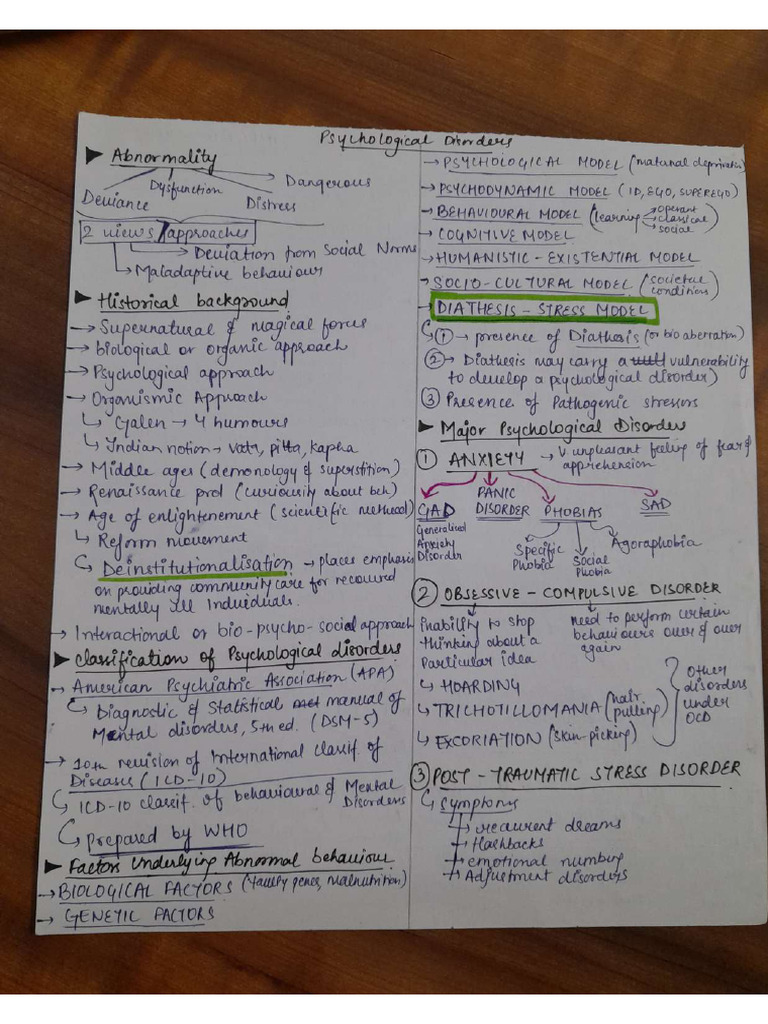 Psychological Disorders
Abnormality
Deviance
Dysfunction
Distress
Dangerous
2 views/approaches
Deviation from Social Norms
Maladaptive behaviour
Historical background
Supernatural & magical forces
biological or organic approach
Psychological approach
Organismic Approach
Galen → 4 humours
Indian notion → vata, pitta, kapha
Middle ages (demonology & superstition)
Renaissance prd (curiousity about beh)
Age of enlightenement (scientific method)
Reform movement
Deinstitutionalisation → places emphasis
on providing community care for recovered
mentally ill Individuals.
Interactional or bio-psycho-social approach
Classification of Psychological disorders
American Psychiatric Association (APA)
Diagnostic & Statistical manual of
Mental disorders, 5th ed. (DSM-5)
10th revision of International classif. of
Diseases (ICD-10)
ICD-10 classif. of behavioural & Mental
Disorders
prepared by WHO
Factors Underlying Abnormal behaviour
BIOLOGICAL FACTORS (faulty genes, malnutrition)
GENETIC FACTORS
PSYCHOLOGICAL MODEL (maternal deprivation)
PSYCHODYNAMIC MODEL (ID, EGO, SUPEREGO)
BEHAVIOURAL MODEL (learning operant
classical
social)
COGNITIVE MODEL
HUMANISTIC - EXISTENTIAL MODEL
SOCIO - CULTURAL MODEL (societal
conditions)
DIATHESIS - STRESS MODEL
① → presence of Diathesis (or bio aberration)
② → Diathesis may carry a vulnerability
to develop a psychological disorder)
③ Presence of Pathogenic stressors
Major Psychological Disorders
① ANXIETY → V unpleasant feeling of fear &
apprehension
GAD
Generalised
Anxiety
Disorder
PANIC
DISORDER
PHOBIAS
SAD
Specific
Phobia
Social
Phobia
Agoraphobia
② OBSESSIVE - COMPULSIVE DISORDER
Inability to stop
thinking about a
particular idea
need to perform certain
behaviours over & over
again
HOARDING
TRICHOTILLOMANIA (hair
pulling)
EXCORIATION (skin-picking)
Other
disorders
under
OCD
③ POST - TRAUMATIC STRESS DISORDER
Symptoms
recurrent dreams
flashbacks
emotional numbing
Adjustment disorders